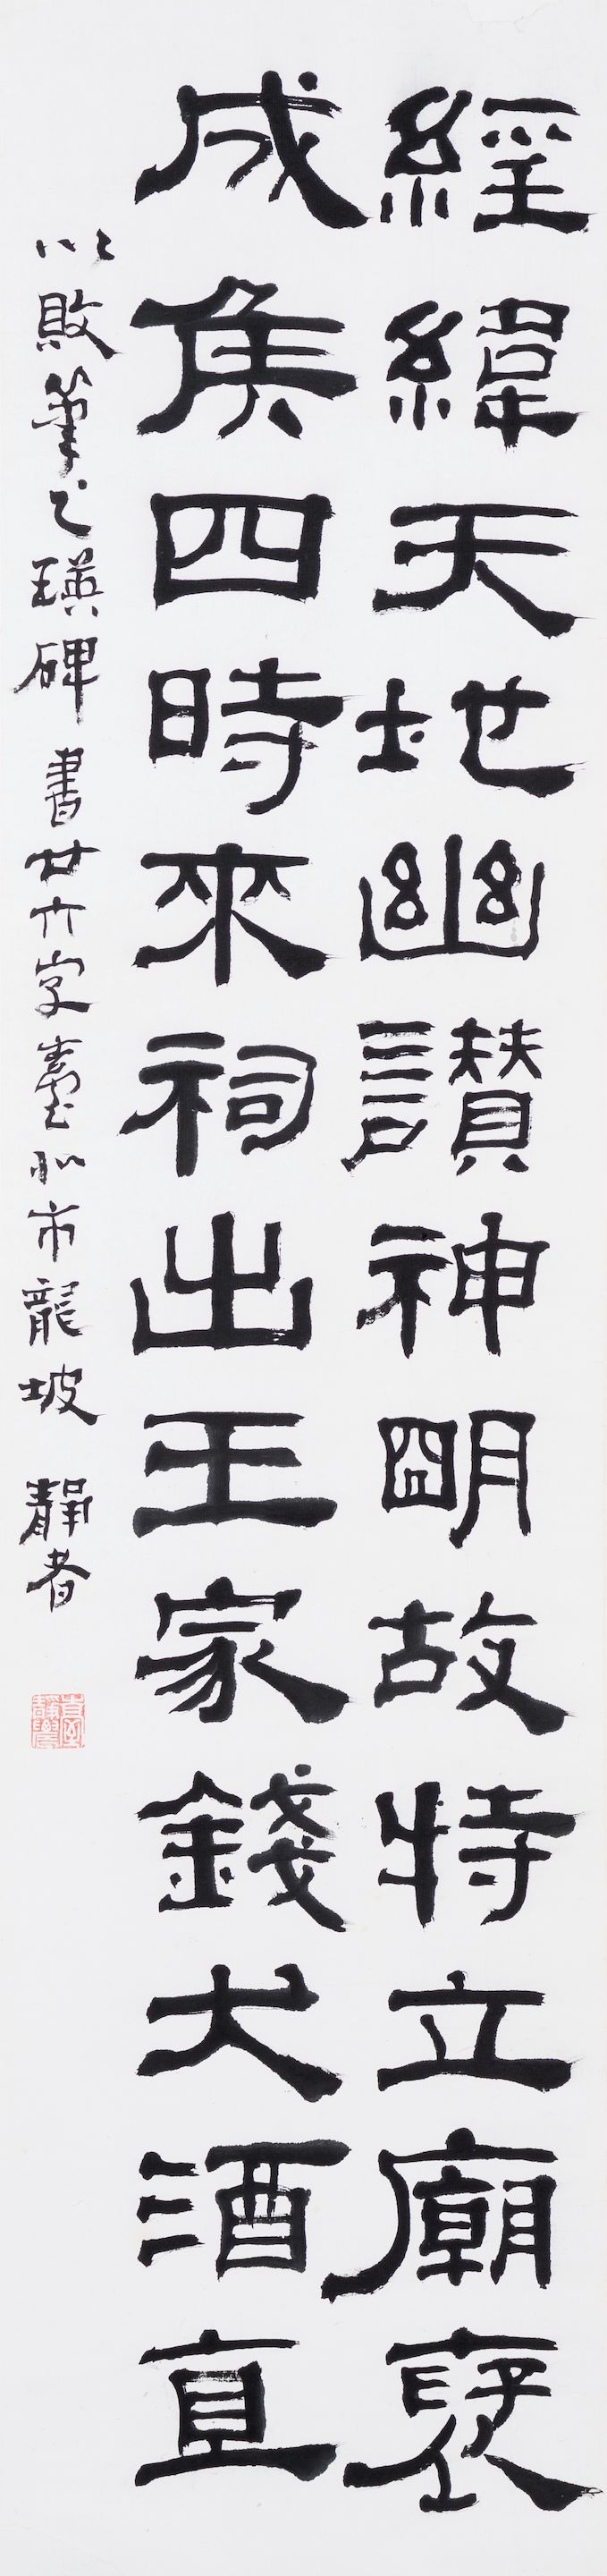 經緯天地幽讚神明故特立廟褒
成侯四時來祠出王家錢犬酒直
以敗筆乙瑛碑書廿六字臺北市龍坡 靜者
臺靜農